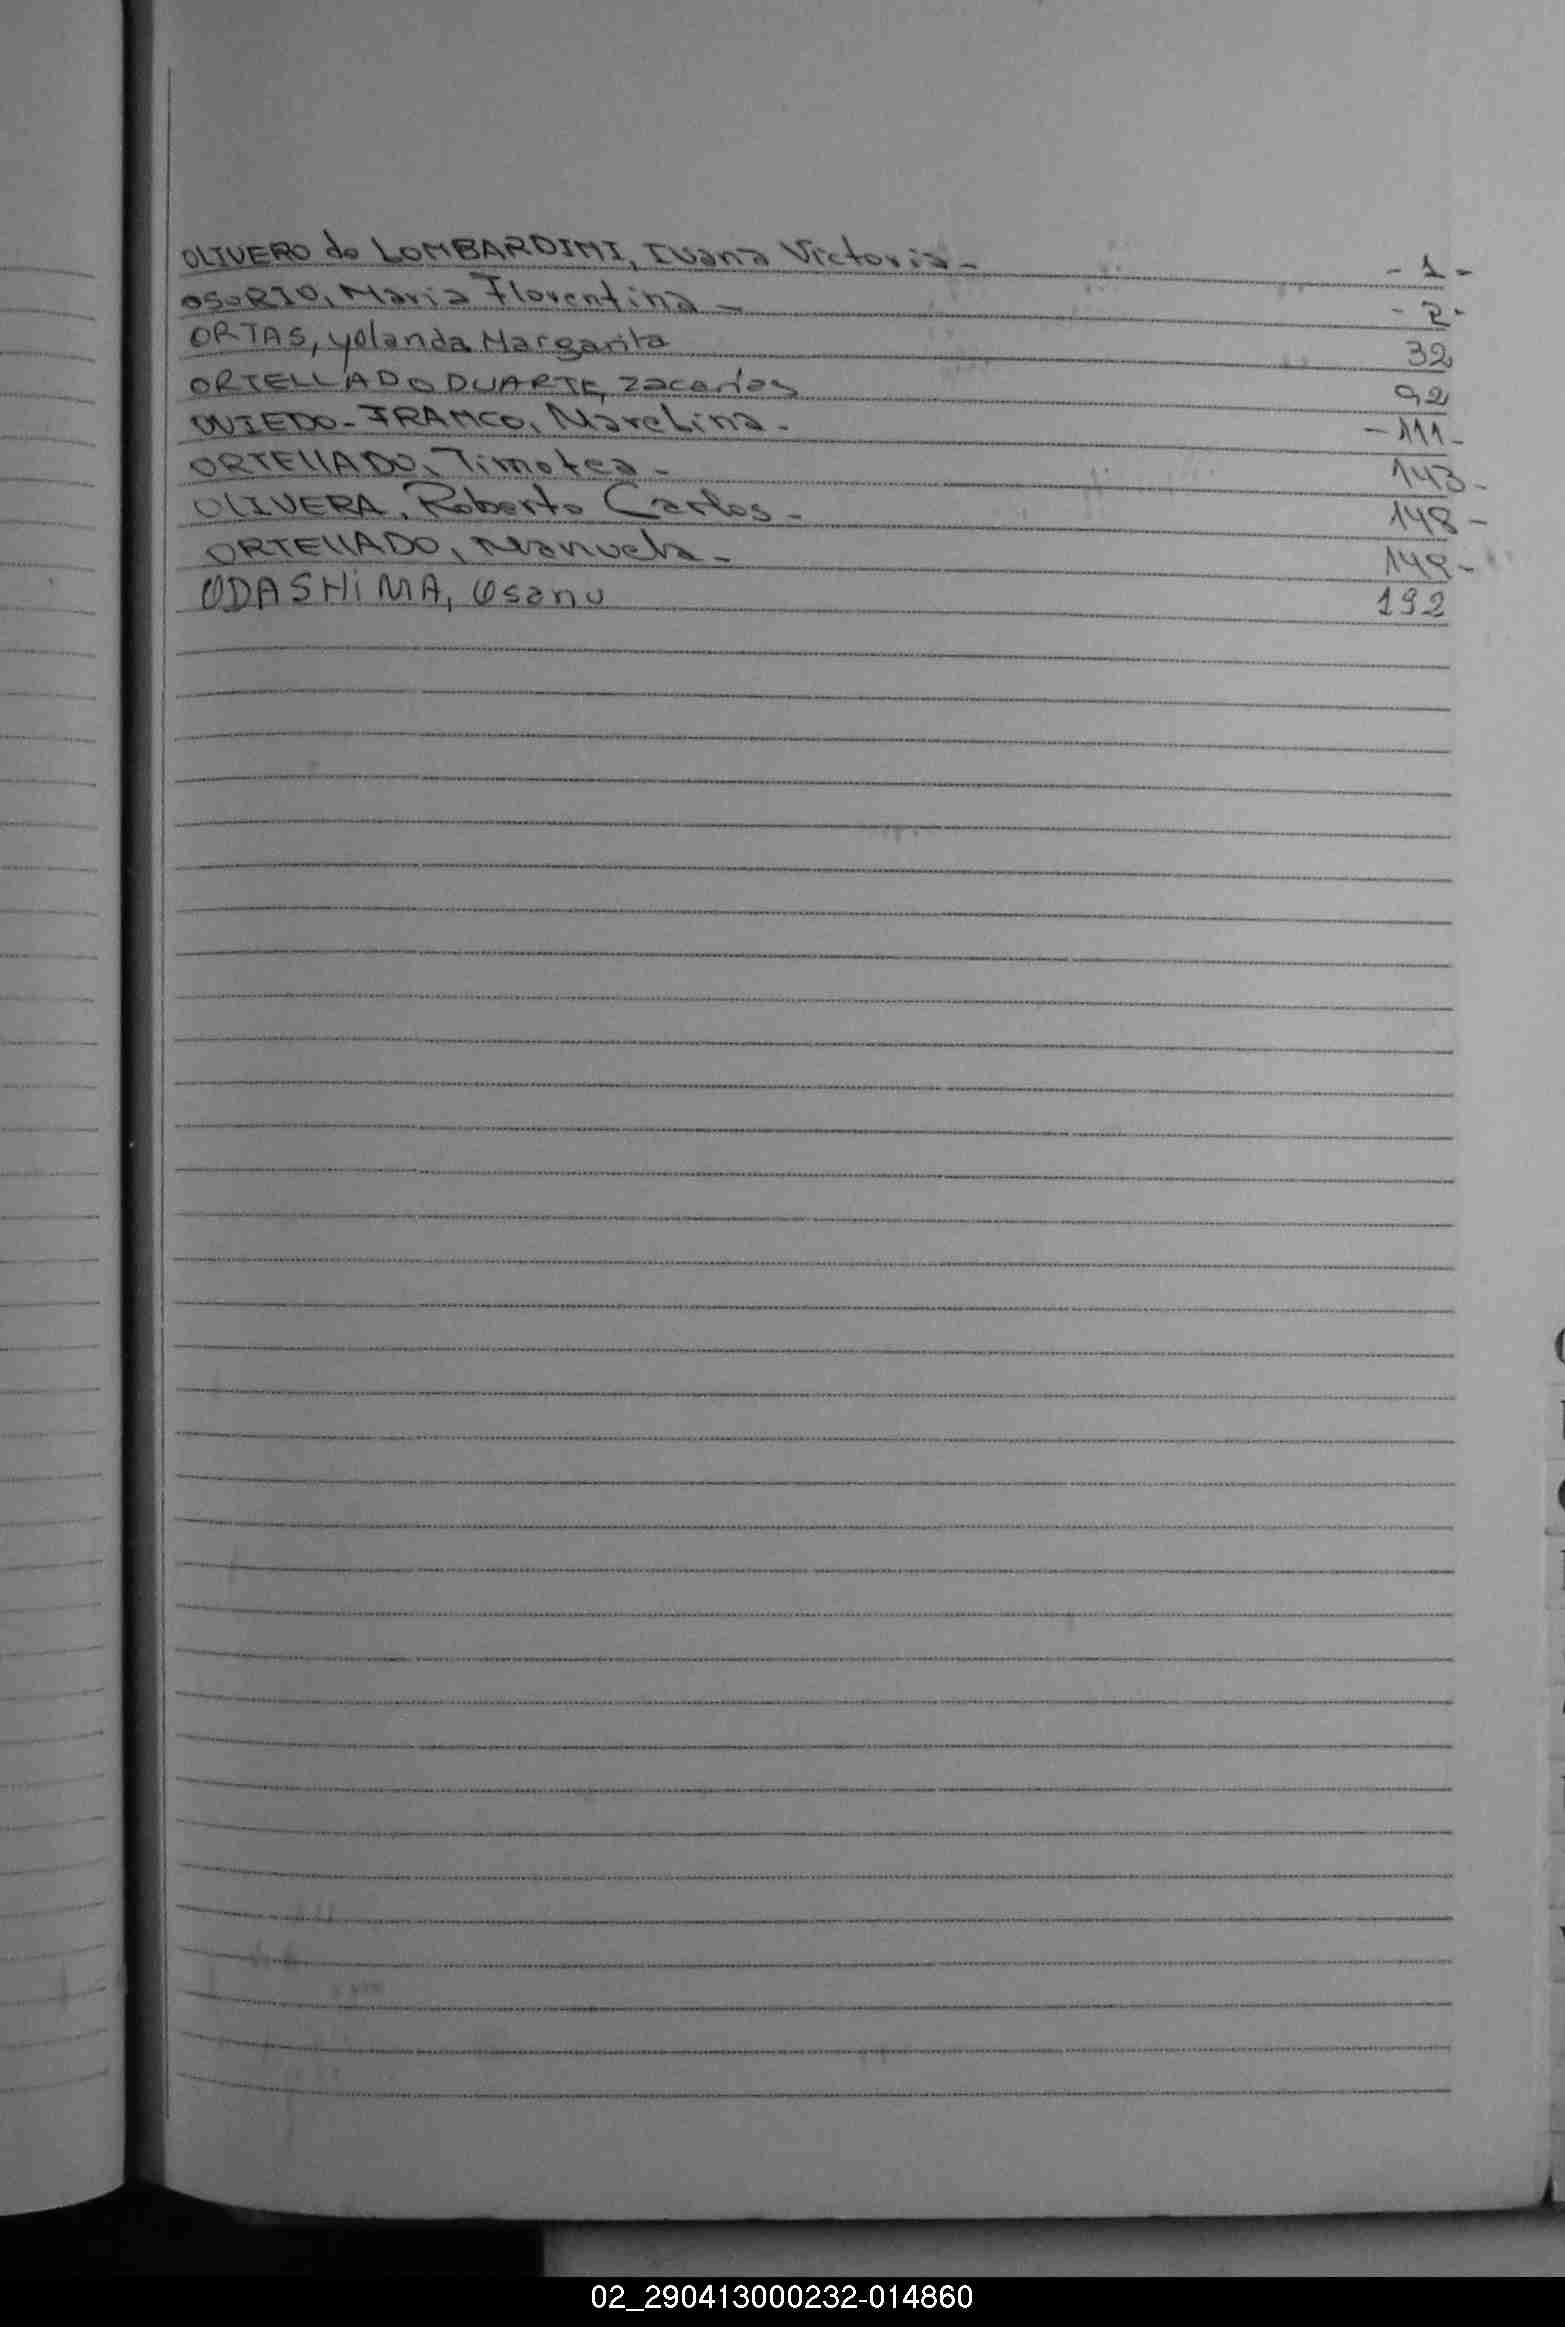 OLIVERO de LOMBARDINI, Ivana Victoria - - 1 -
OSORIO, Maria Florentina - - 2 -
ORTAS, Yolanda Margarita 32
ORTELLADO DUARTE, Zacarias 92
OVIEDO - FRANCO, Marelina - - 111 -
ORTELLADO, Timotea - 143 -
OLIVERA, Roberto Carlos - 148 -
ORTELLADO, Manuela - 149 -
ODASHiMA, Osanu 192
02_290413000232-014860